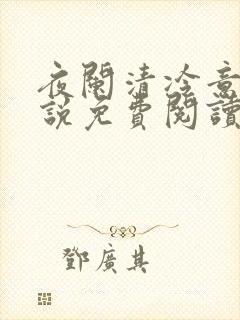 夜闌清冷意
說免費閱讀
鄧廣其